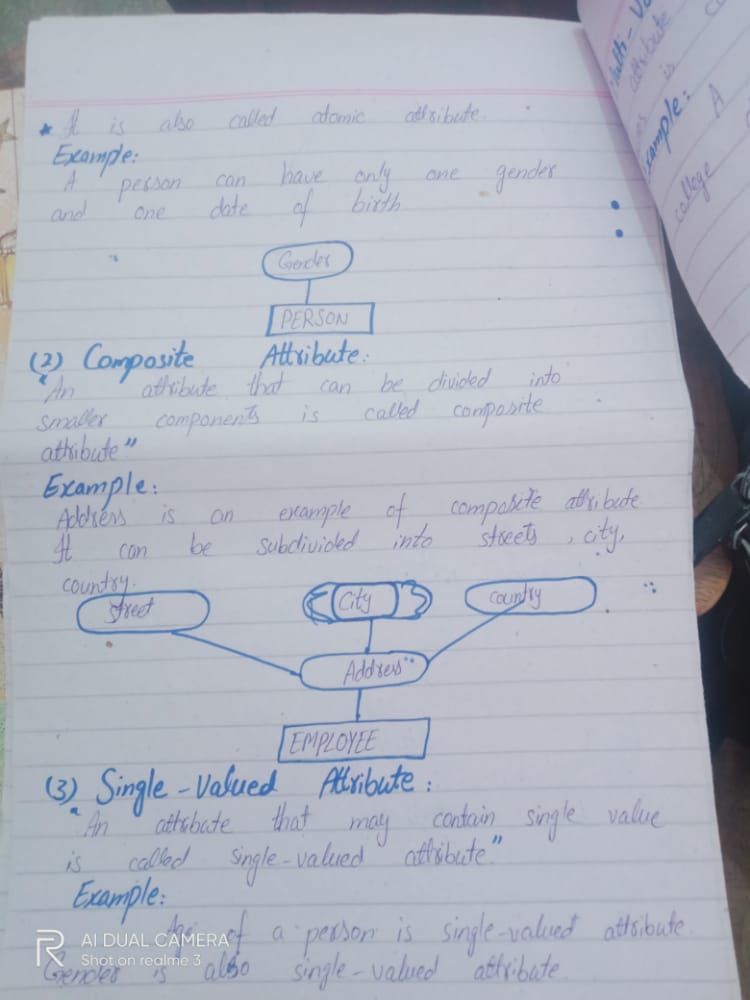 * It is also called atomic attribute.
Example:
A person can have only one gender
and one date of birth
Gender
PERSON
(2) Composite Attribute:
"An attribute that can be divided into
smaller components is called composite
attribute"
Example:
Address is an example of composite attribute
It can be subdivided into streets, city,
country.
Street City Country
Address
EMPLOYEE
(3) Single-Valued Attribute:
"An attribute that may contain single value
is called single-valued attribute."
Example:
Age of a person is single-valued attribute.
Gender is also single-valued attribute.
attribute
is
Example: A
college
AI DUAL CAMERA
Shot on realme 3